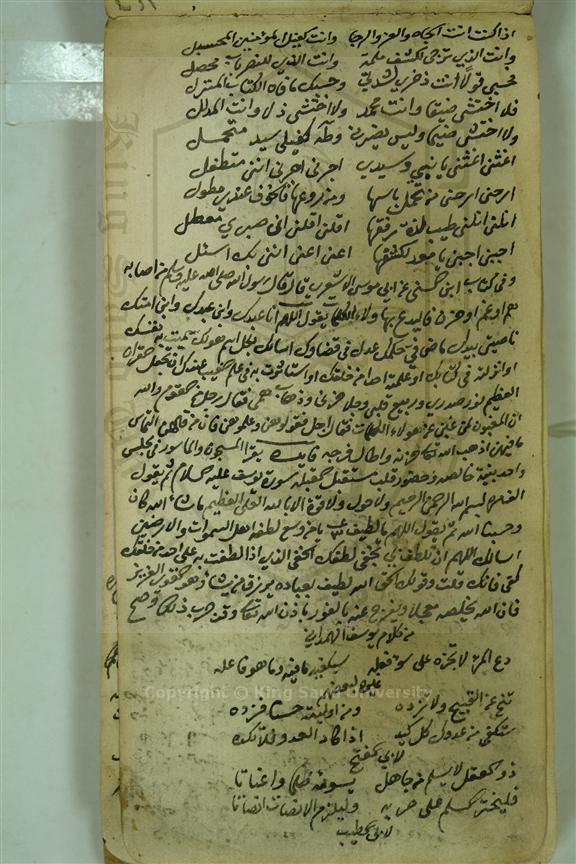 اذا كنت انت الجاه والعز والرجا وانت كفيل المؤمنين المحسبل
وانت الذي ترجى لكشف ملمة وانت الذي للنصر
محسبي قولا انت ذخري لشدتي وحسبك ما فاه الكتاب المنزل
فلا اختشي ضيقا وانت محمد ولا اختشي ذلا وانت المدلل
ولا اختشي ضيما وليس يضرني وطه كفيلي سيد متجمل
اغثني اغثني يا نبيي وسيدي اجرني اجرني انني متطفل
ارحني ارحني من تحمل باسها ومن روعها فالخوف عندي مطول
انلني انلني طيب لذة رفقها اقلني اقلني اني صبري معطل
اجبني اجبني يا معيد لكشفها اعني اعني انني لك اسئل
وفي كتاب ابن السني عن ابي موسى الاشعري قال قال رسول الله صلى الله عليه وسلم من اصابه
هم او غم او حزن فليدع بهؤلاء الكلمات يقول اللهم انا عبدك وابن عبدك وابن امتك
ناصيتي بيدك ماض في حكمك عدل في قضاؤك اسالك بكل اسم هو لك سميت به نفسك
او انزلته في كتابك او علمته احدا من خلقك او استاثرت به في علم الغيب عندك ان تجعل القران
العظيم نور صدري وربيع قلبي وجلا حزني وذهاب همي فقال رجل من القوم والله
ان المغبون لمن غبن عن هؤلاء الكلمات فقال اجل فقولوهن وعلموهن فان من قالهن التماس
ما فيهن اذهب الله تعالى حزنه واطال فرحه فايدة يقرا المسجون والماسور في مجلس
واحد بنية خالصه وحضور قلب مستقبل القبلة سورة يوسف عليه السلام ثم يقول
بسم الله الرحمن الرحيم ولا حول ولا قوة الا بالله العلي العظيم ما شاء الله كان
وحسبنا الله ثم يقول اللهم يا لطيف يا من وسع لطفه اهل السموات والارضين
اسالك اللهم ان تلطف بي بخفي لطفك الخفي الذي اذا لطفت به على احد من خلقك
كفى فانك قلت وقولك الحق الله لطيف بعباده يرزق من يشاء وهو القوي العزيز
فان الله يخلصه معجلا ويفرج عنه بالفور باذن الله تعالى وقد جرب ذلك وصح
من كلام يوسف الهمداني
دع المرء لا تجزه على سوء فعله سيكفيه ما فيه وما هو فاعله
غيره لبعضهم
تنح عن القبيح ولا ترده ومن اوليته حسنا فزده
ستكفى من عدوك كل كيد اذا كاد العدو فلا تكده
لابي الفتح
ذو العقل لا يسلم من جاهل يسومه ظلما واعناتا
فليختر السلم على حربه وليلزم الانصات انصاتا
لابن الخطيب
Copyright © King Saud University